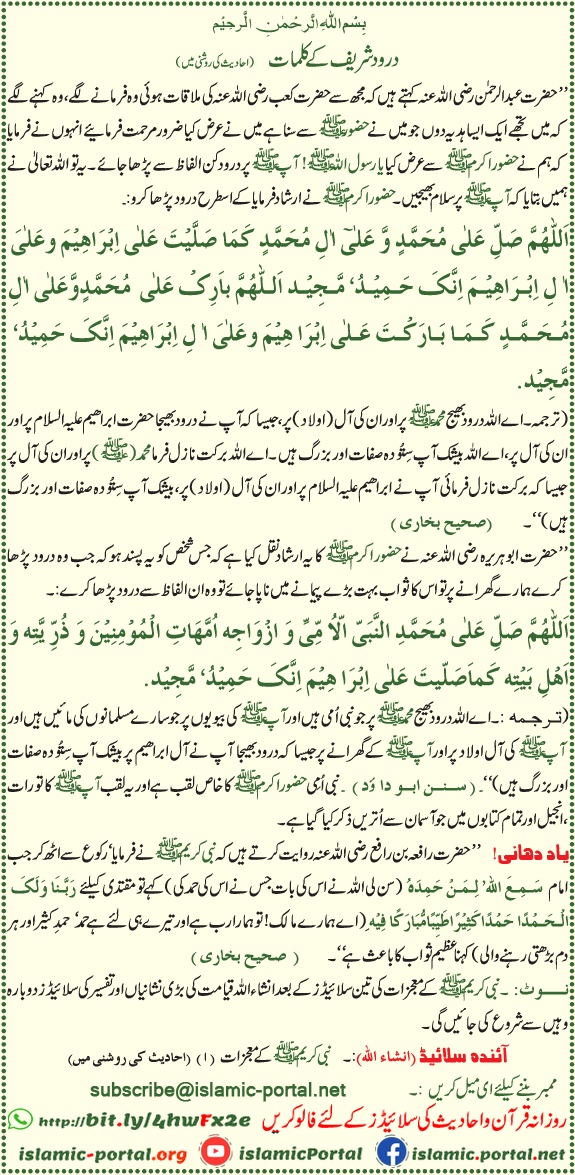 بِسْمِ اللہِ الرَّحْمٰنِ الرَّحِیْمِ
درود شریف کے کلمات (احادیث کی روشنی میں)
’’حضرت عبدالرحمٰن رضی اللہ عنہ کہتے ہیں کہ مجھ سے حضرت کعب رضی اللہ عنہ کی ملاقات ہوئی وہ فرمانے لگے، وہ کہنے لگے
کہ میں تجھے ایک ایسا ہدیہ دوں جو میں نے حضور ﷺ سے سنا ہے میں نے عرض کیا ضرور مرحمت فرمایئے انہوں نے فرمایا
کہ ہم نے حضور اکرم ﷺ سے عرض کیا یا رسول اللہ ﷺ! آپ ﷺ پر درود کن الفاظ سے پڑھا جائے۔ یہ تو اللہ تعالیٰ نے
ہمیں بتایا کہ آپ ﷺ پر سلام بھیجیں۔ حضور اکرم ﷺ نے ارشاد فرمایا کے اسطرح درود پڑھا کرو:۔
اَللّٰھُمَّ صَلِّ عَلٰی مُحَمَّدٍ وَّ عَلٰیٓ اٰلِ مُحَمَّدٍ کَمَا صَلَّیْتَ عَلٰی اِبْرَاھِیْمَ وعَلیٰ
اٰ لِ اِبْرَاھِیْمَ اِنَّکَ حَمِیْدُ‘ مَّجِیْد اَللّٰھُمَّ بَارِکْ عَلٰی مُحَمَّدٍ وَّعَلٰی اٰلِ
مُحَمَّدٍ کَمَا بَارَکْتَ عَلٰی اِبْرَا ھِیْمَ وَعَلیٰ اٰ لِ اِبْرَاھِیْمَ اِنَّکَ حَمِیْدُ‘
مَّجِیْد.
(ترجمہ۔ اے اللہ درود بھیج محمد ﷺ پر اور ان کی آل (اولاد) پر، جیسا کہ آپ نے درود بھیجا حضرت ابراھیم علیہ السلام پر اور
ان کی آل پر، اے اللہ بیشک آپ ستُودہ صفات اور بزرگ ہیں ۔ اے اللہ برکت نازل فرما محمد (ﷺ) پر اور ان کی آل پر
جیسا کہ برکت نازل فرمائی آپ نے ابراھیم علیہ السلام پر اور ان کی آل (اولاد) پر، بیشک آپ ستُودہ صفات اور بزرگ
ہیں)‘‘۔ (صحیح بخاری)
’’حضرت ابو ہریرہ رضی اللہ عنہ نے حضور اکرم ﷺ کا یہ ارشاد نقل کیا ہے کہ جس شخص کو یہ پسند ہو کہ جب وہ درود پڑھا
کرے ہمارے گھرانے پر تو اس کا ثواب بہت بڑے پیمانے میں ناپا جائے تو وہ ان الفاظ سے درود پڑھا کرے:۔
اَللّٰھُمَّ صَلِّ عَلٰی مُحَمَّدِ النَّبیِّ الْاُ مِّیِّ وَ ازْوَاجِہ اُمَّھَاتِ الْمُوْمِنِیْنَ وَ ذُرِّ یَّتِہ وَ
اَھْلِ بَیْتِہ کَمَاصَلَّیتَ عَلٰی اِبْرَا ھِیْمَ اِنَّکَ حَمِیْدُ‘ مَّجِیْد.
(ترجمہ :۔ اے اللہ درود بھیج محمد ﷺ پر جو نبی اُمی ہیں اور آپ ﷺ کی بیویوں پر جو سارے مسلمانوں کی مائیں ہیں اور
آپ ﷺ کی آل اولاد پر اور آپ ﷺ کے گھرانے پر جیسا کہ درود بھیجا آپ نے آل ابراھیم پر بیشک آپ ستُودہ صفات
اور بزرگ ہیں)‘‘۔ (سنن ابو داؤد)۔ نبی اُمی حضور اکرم ﷺ کا خاص لقب ہے اور یہ لقب آپ ﷺ کا تورات
، انجیل اور تمام کتابوں میں جو آسمان سے اُتریں ذکر کیا گیا ہے۔
یاد دھانی! ’’حضرت رافعہ بن رافع رضی اللہ عنہ روایت کرتے ہیں کہ نبی کریم ﷺ نے فرمایا‘ رکوع سے اٹھ کر جب
امام سَمِعَ اللہ‘ لِمَنْ حَمِدَہٗ (سن لی اللہ نے اس کی بات جس نے اس کی حمد کی) کہے تو مقتدی کیلئے رَبَّنَا وَلَکَ
الْحَمْدُ حَمْدًا کَثِیْرًا طَیِّبًا مُّبَارَکًا فِیْہِ (اے ہمارے مالک! تو ہمارا رب ہے اور تیرے ہی لئے ہے حمد‘ حمدِ کثیر اور ہر
دم بڑھتی رہنے والی) کہنا عظیم ثواب کا باعث ہے‘‘۔ (صحیح بخاری)
نوٹ: ۔ نبی کریم ﷺ کے معجزات کی تین سلائیڈز کے بعد انشاء اللہ قیامت کی بڑی نشانیاں اور تفسیر کی سلائیڈز دوبارہ
وہیں سے شروع کی جائیں گی۔
آئندہ سلائیڈ (انشاء اللہ):۔ نبی کریم ﷺ کے معجزات (۱) (احادیث کی روشنی میں)
ممبر بننے کیلئے ای میل کریں :۔ subscribe@islamic-portal.net
روزانہ قرآن و احادیث کی سلائیڈز کے لئے فالو کریں http://bit.ly/4hwFx2e
islamic-portal.org islamicPortal islamic.Portal.net